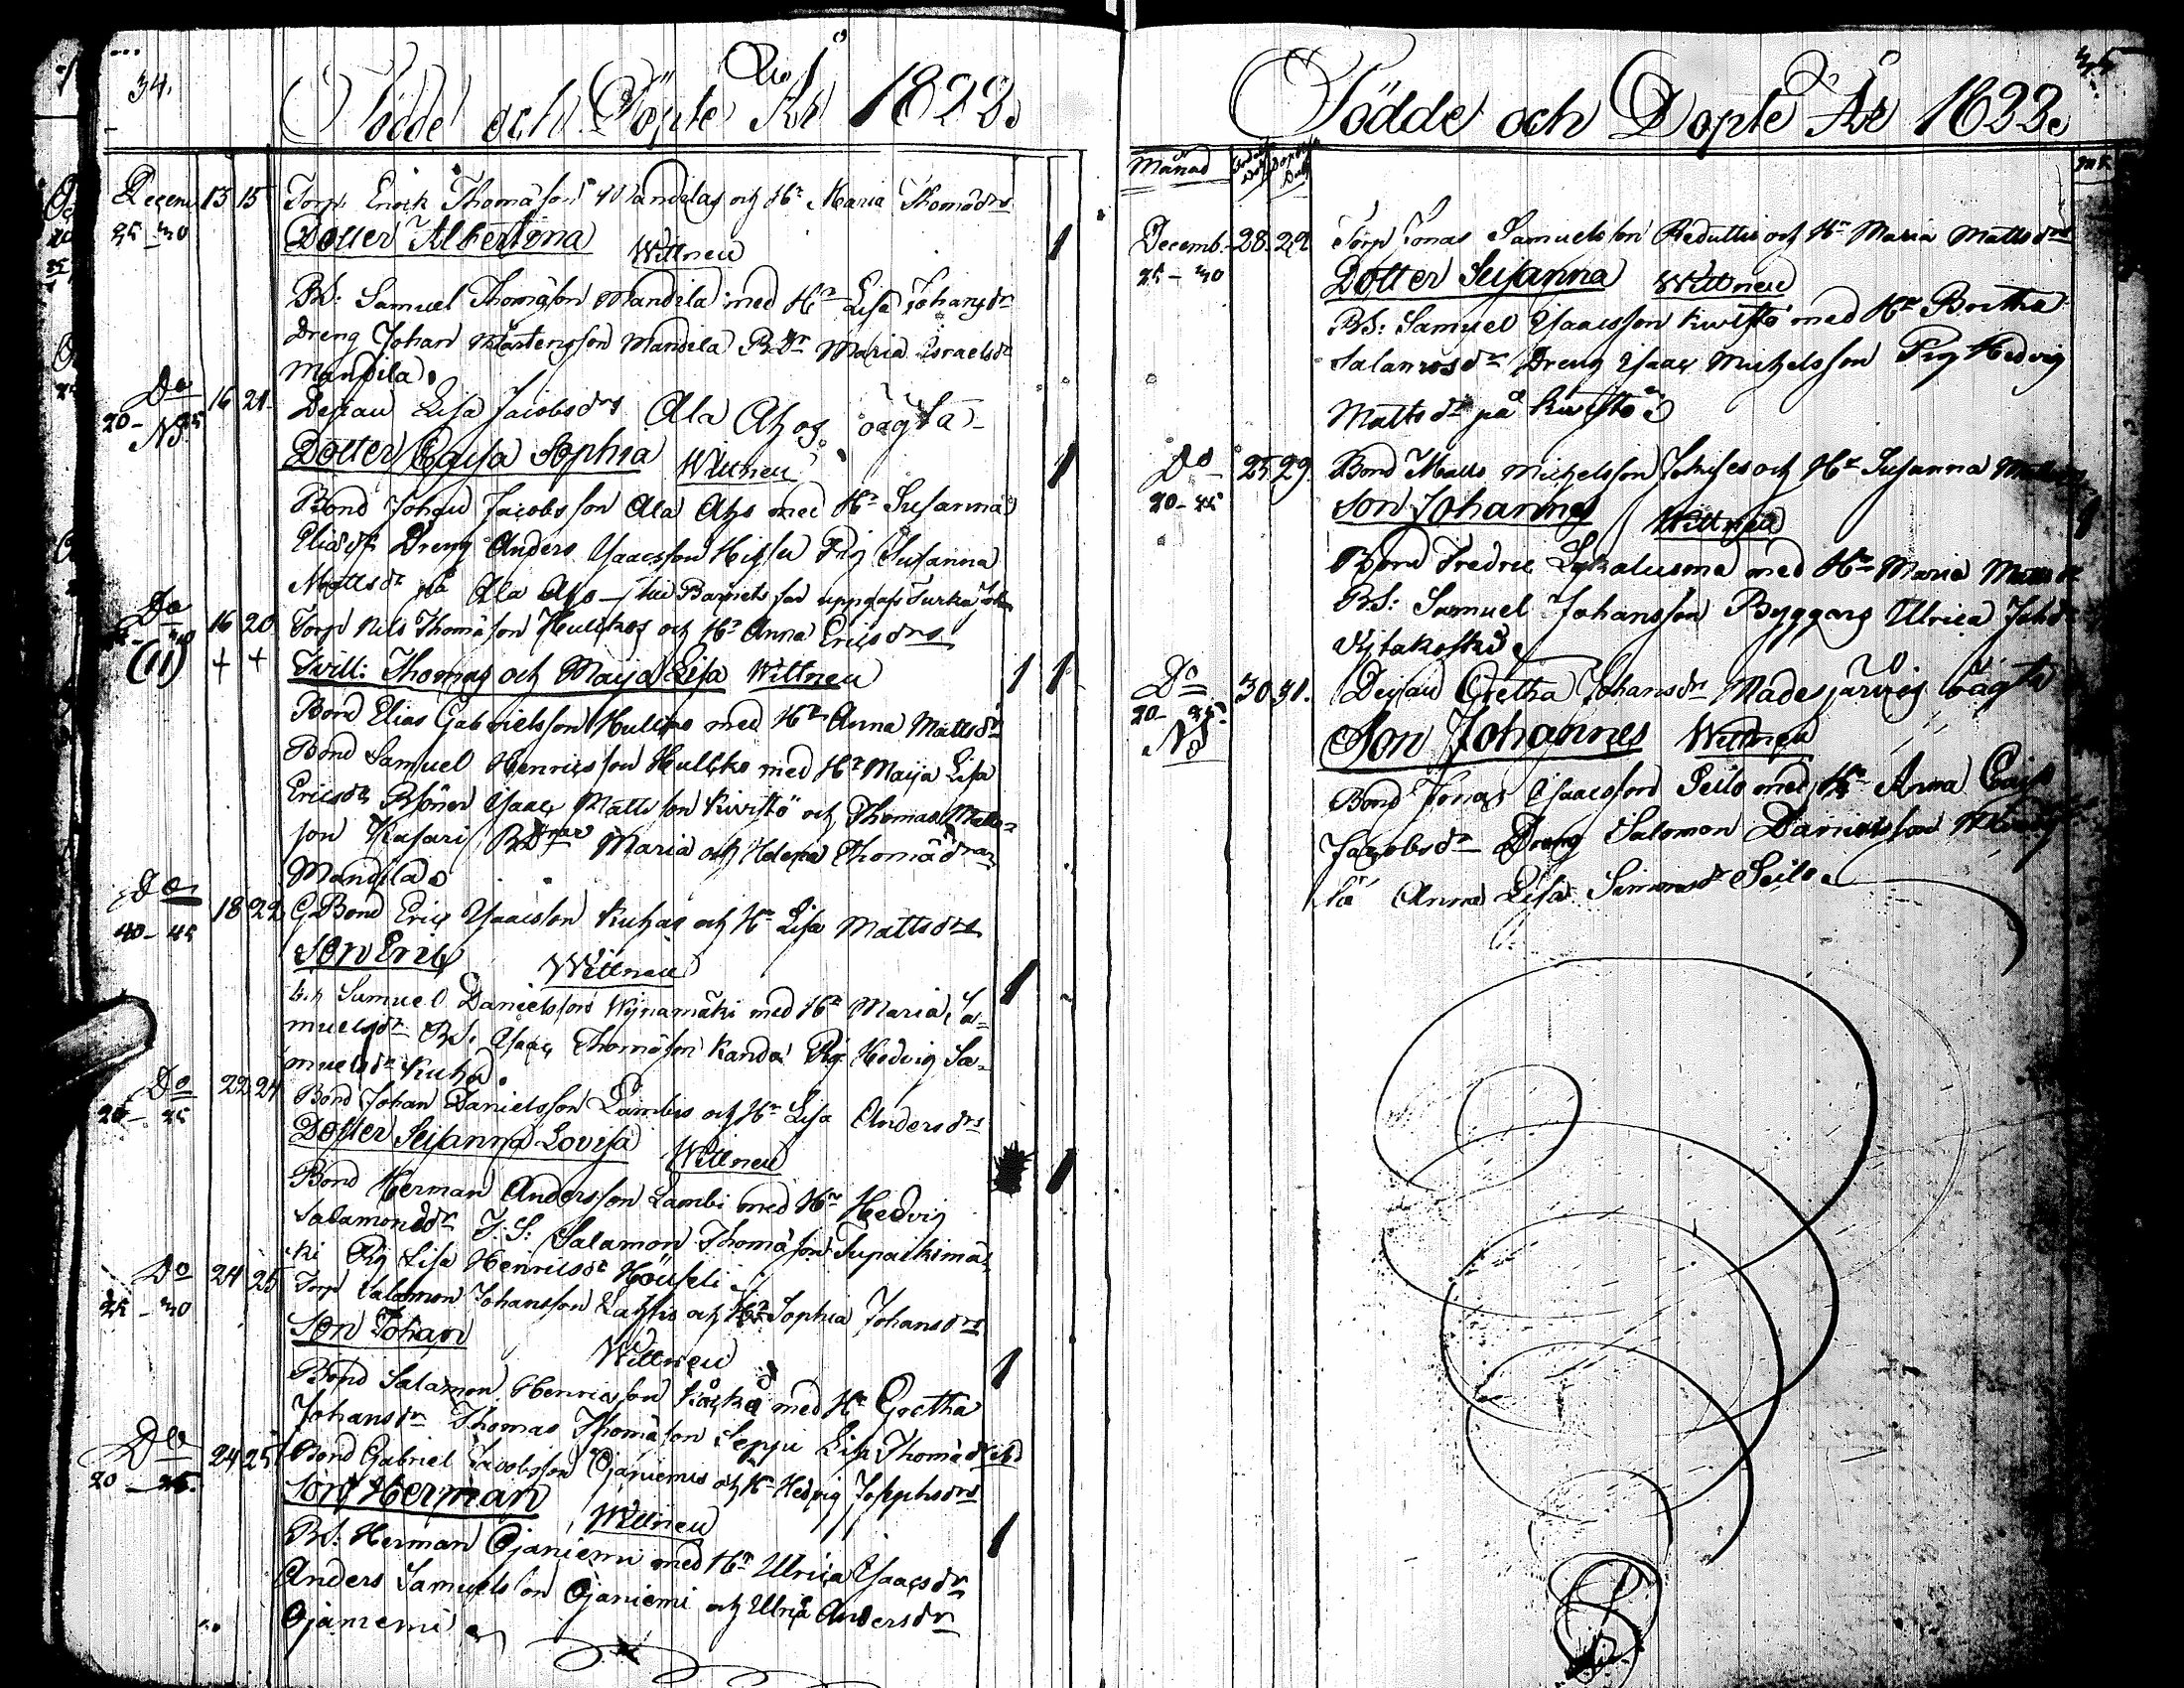 34.
Födde och Döpte Åhr 1822.
Decemb 13 15 Torp Enock Thomasson Mandilas och Hn Maria Thomædrs
25 - 30 Dotter Albertina Wittnen 1
BS: Samuel Thomæson Mandila med Hn Lisa Johansdr
Dreng Johan Mårtensson Mandila BDr Maria Israelsdr
Mandila.
Do 16 21. Deyan Lisa Jacobsdrs Ala Aho oägta
20 - 25 Dotter Cajsa Sophia Wittnen 1
NB.
Bond Johan Jacobsson Ala Aho med Hn Susanna
Eliædr Dreng Anders Ysaacsson Pig Susanna
Mattsdr på Ala Aho Barnets far uppgafs
Do 16 20 Torp Nils Thomæson Hulckos och Hn Anna Ericsdrs
(11) + + Twill: Thomas och Maija Lisa Wittnen 1 1
Bond Elias Gabrielsson Hulcko med Hn Anna Mattsdr
Bond Samuel Henricsson Hulcko med Hn Maija Lisa
Ericsdr Bsöner Ysaac Mattsson Kivistö och Thomas Matts-
son Kasari BDrar Maria och Helena Thomædrar
Mandila.
Do 18 22 Bond Eric Ysaacsson Kuhas och Hn Lisa Mattsdrs
40 - 45 Son Eric Wittnen 1
Samuel Danielsson Wijnamäki med Hn Maria Sa-
muelsdr BS. Ysaac Thomæson Kanda Pig Hedvig Sa-
muelsdr Kuha.
Do 22 24 Bond Johan Danielsson Lambis och Hn Lisa Andersdrs
20 - 25 Dotter Susanna Lovisa Wittnen 1
Bond Herman Andersson Lambi med Hn Hedvig
Salamonsdr T.S: Salamon Thomæson Tupackimä-
ki Pig Lisa Henricsdr
Do 24 25 Torp Salomon Johansson Lahtis och Hn Sophia Johansdrs
25 - 30 Son Johan Wittnen 1
Bond Salamon Henricsson med Hn Gretha
Johansdr Thomas Thomæson Seppi Lisa Thomædr
Do 24 25 Bond Gabriel Jacobsson Ojaniemis och Hn Hedvig Josephsdrs
20 - 25. Son Herman Wittnen 1
BS: Herman Ojaniemi med Hn Ulrica Ysaacsdr
Anders Samuelsson Ojaniemi och Ulrica Andersdr
Ojaniemi
35
Födde och Döpte År 1822.
Månad
Decemb. 28. 29 Torp Jonas Samuelsson Reduttis och Hn Maria Mattsdrs
25 - 30 Dotter Susanna Wittnen
BS: Samuel Ysaacsson Kivistö med Hn Bretha
Salamonsdr Dreng Ysaac Michelsson Pig Hedvig
Mattsdr på Kivistö
Do 25 29. Bond Matts Michelsson och Hn Susanna
20 - 25 Son Johannes Wittnen 1
Bond Fredric Lykaluoma med Hn Maria Mattsdr
BS: Samuel Johansson Byggars Ulrica
Do 30 31. Deyan Gretha Johansdr Madesjärvis oägta
20 - 25 Son Johannes Wittnen
NB
Bond Jonas Ysaacsson Seilo med Hn Anna Caisa
Jacobsdr Dreng Salomon Danielsson
Anna Lisa Simonsdr Seilo